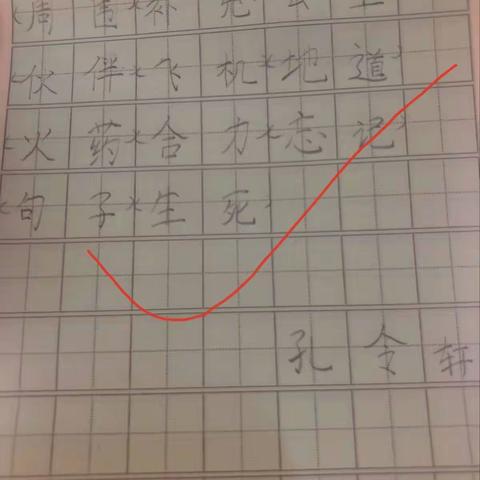 周围 补充
伙伴 飞机 地道
火药 合力 忘记
句子 生死
孔令轩